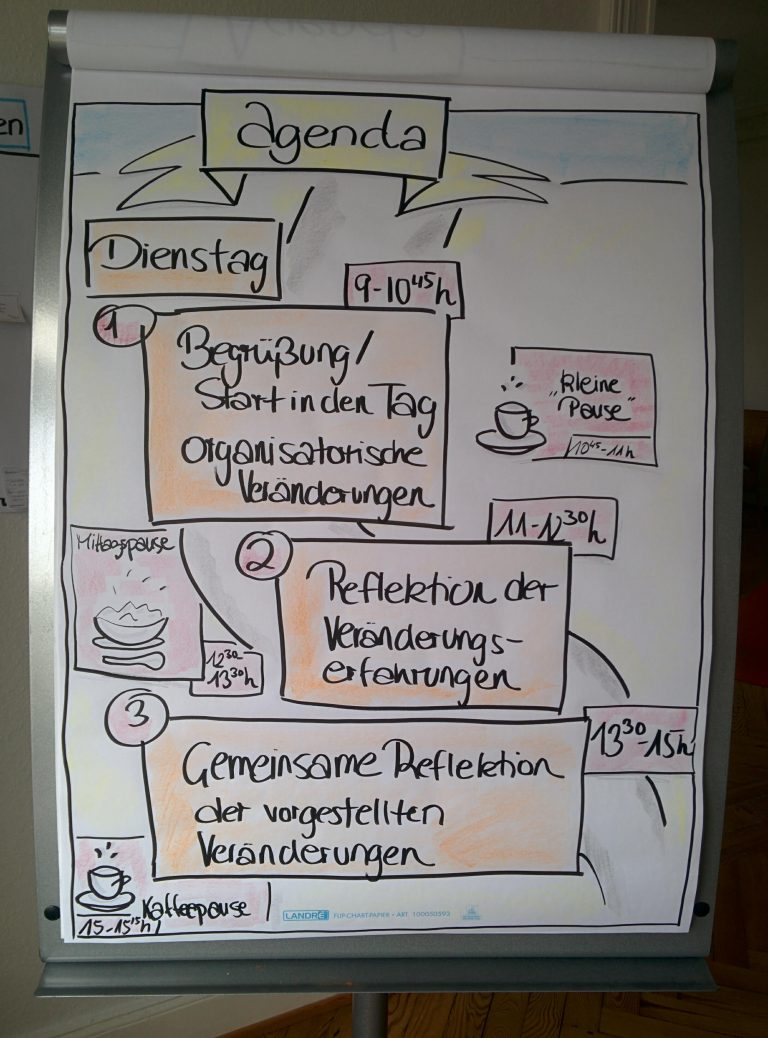 en
agenda
Dienstag
9-10⁴⁵h
1
Begrüßung/
Start in den Tag
Organisatorische
Veränderungen
„Kleine
Pause"
10⁴⁵-11h
11-12³⁰h
2
Reflektion der
Veränderungs-
erfahrungen
Mittagspause
12³⁰-
13³⁰h
3
13³⁰-15h
Gemeinsame Reflektion
der vorgestellten
Veränderungen
Kaffeepause
15-15¹⁵h
LANDRÉ FLIP-CHART-PAPIER • ART. 100050593